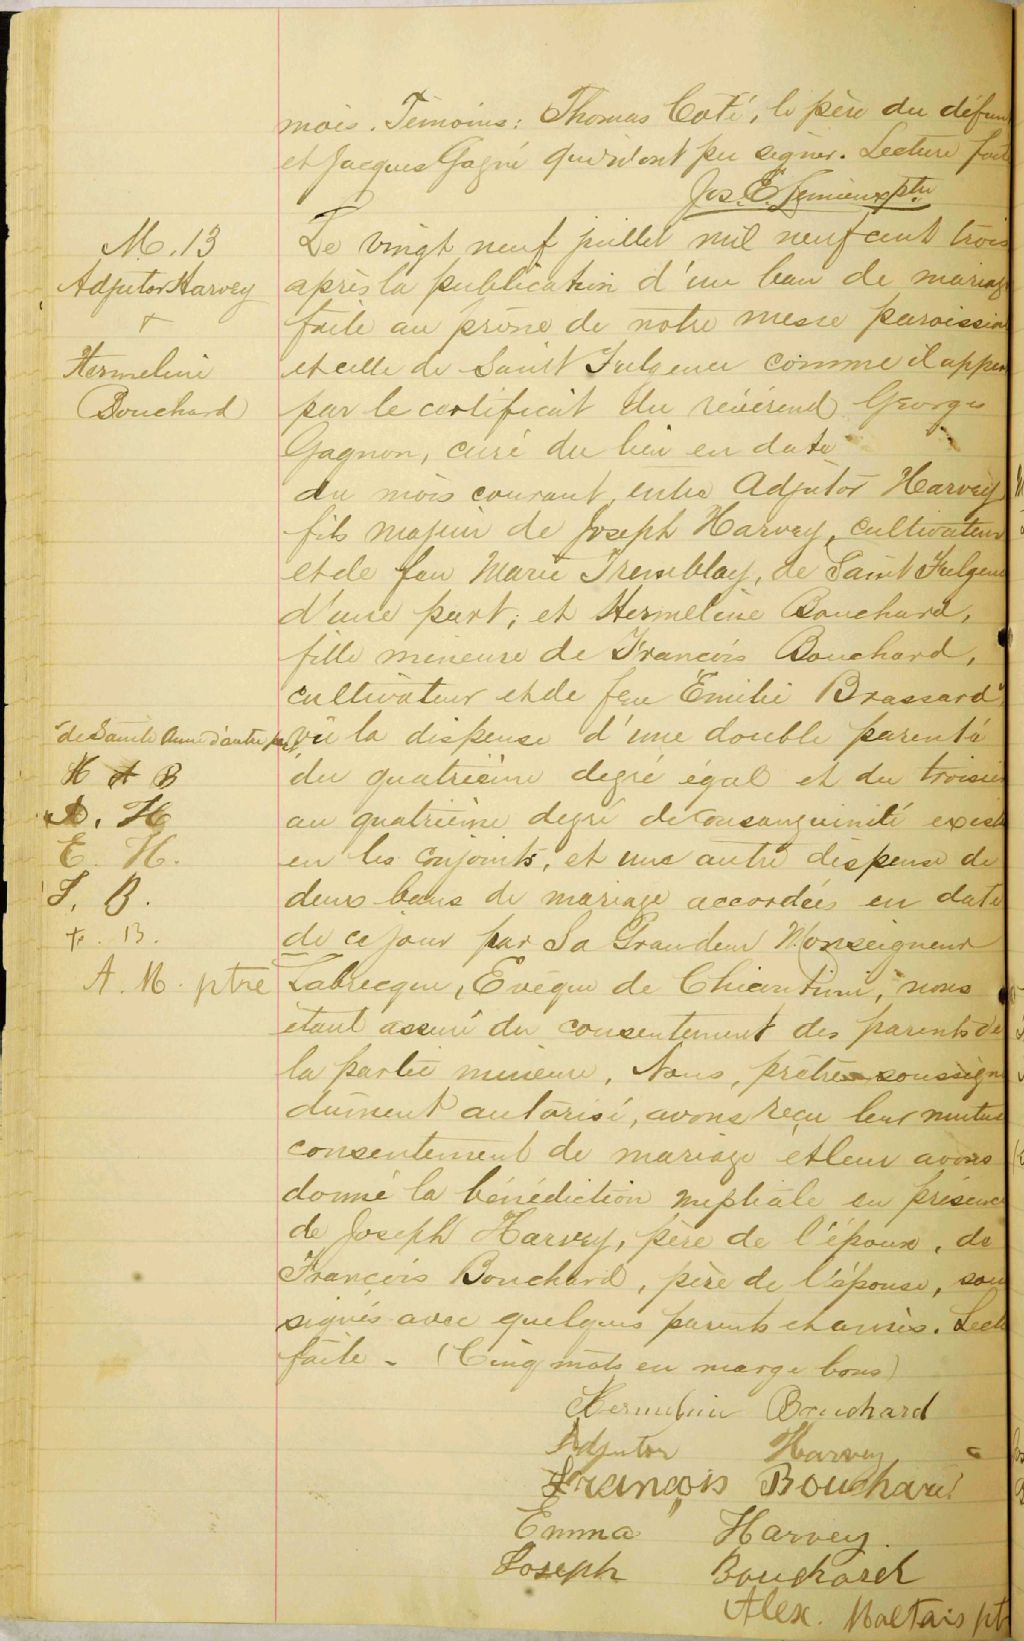 mois. Témoins: Thomas Coté, le père du défunt
et Jacques Gagné qui n'ont pu signer. Lecture faite
Jos. E. Lemieux ptre
M. 13
Adjutor Harvey
+
Hermeline
Bouchard
Le vingt neuf juillet mil neuf cent trois
après la publication d'un ban de mariage
faite au prône de notre messe paroissiale
et celle de Saint Fulgence comme il appert
par le certificat du révérend Georges
Gagnon, curé du lieu en date
du mois courant, entre Adjutor Harvey
fils majeur de Joseph Harvey, cultivateur
et de feu Marie Tremblay, de Saint Fulgence
d'une part; et Hermeline Bouchard,
fille mineure de François Bouchard,
cultivateur et de feu Emilie Brassard,
"de Sainte Anne d'autre part"
H A B
A. H
E. H.
J. B.
F. B.
A. M. ptre
vu la dispense d'une double parenté
du quatrième degré égal et du troisième
au quatrième degré de consanguinité existe
en les conjoints, et une autre dispense de
deux bans de mariage accordées en date
de ce jour par Sa Grandeur Monseigneur
Labrecque, Evêque de Chicoutimi, nous
étant assuré du consentement des parents de
la partie mineure, Nous, prêtre soussigné
dûment autorisé, avons reçu leur mutuel
consentement de mariage et leur avons
donné la bénédiction nuptiale en présence
de Joseph Harvey, père de l'époux, de
François Bouchard, père de l'épouse, sous
signés avec quelques parents et amis. Lecture
faite - (Cinq mots en marge bons)
Hermeline Bouchard
Adjutor Harvey
François Bouchard
Emma Harvey
Joseph Bouchard
Alex. Maltais ptr